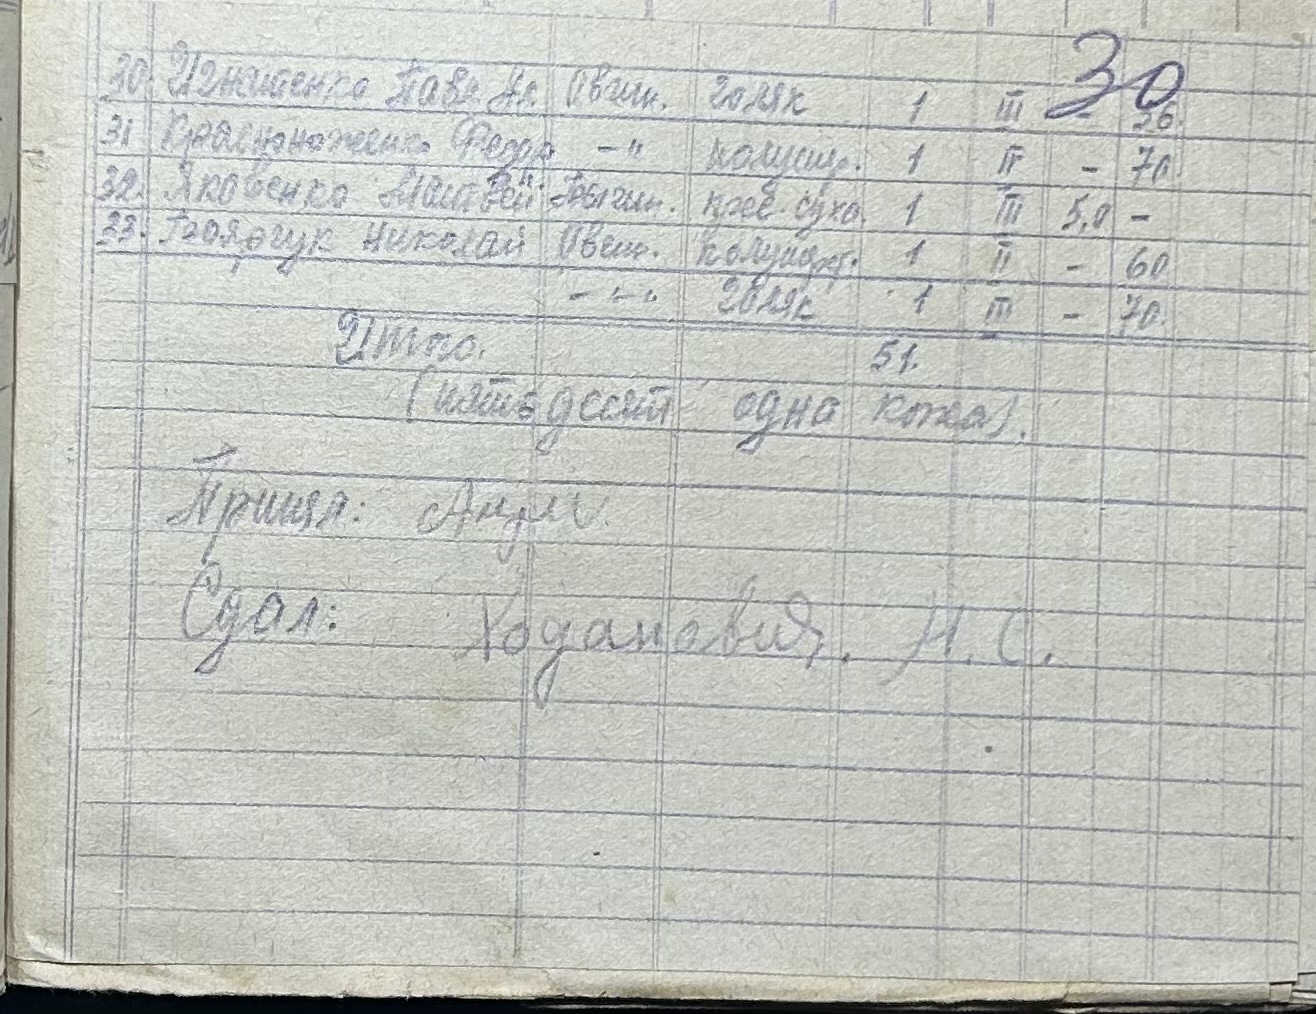 30
30. Игнатенко Павл. Ал. Овчин. голяк 1 III - 56.
31 Красноноженко Федор -"- полушер. 1 II - 70
32. Яковенко Матвей крес. сухо. 1 III 5,0 -
33. Николай Овчин. 1 II - 60
-"-"- голяк 1 III - 70.
Итого. 51.
(пятьдесят одна кожа).
Принял:
Сдал: Ходанович. Н. С.